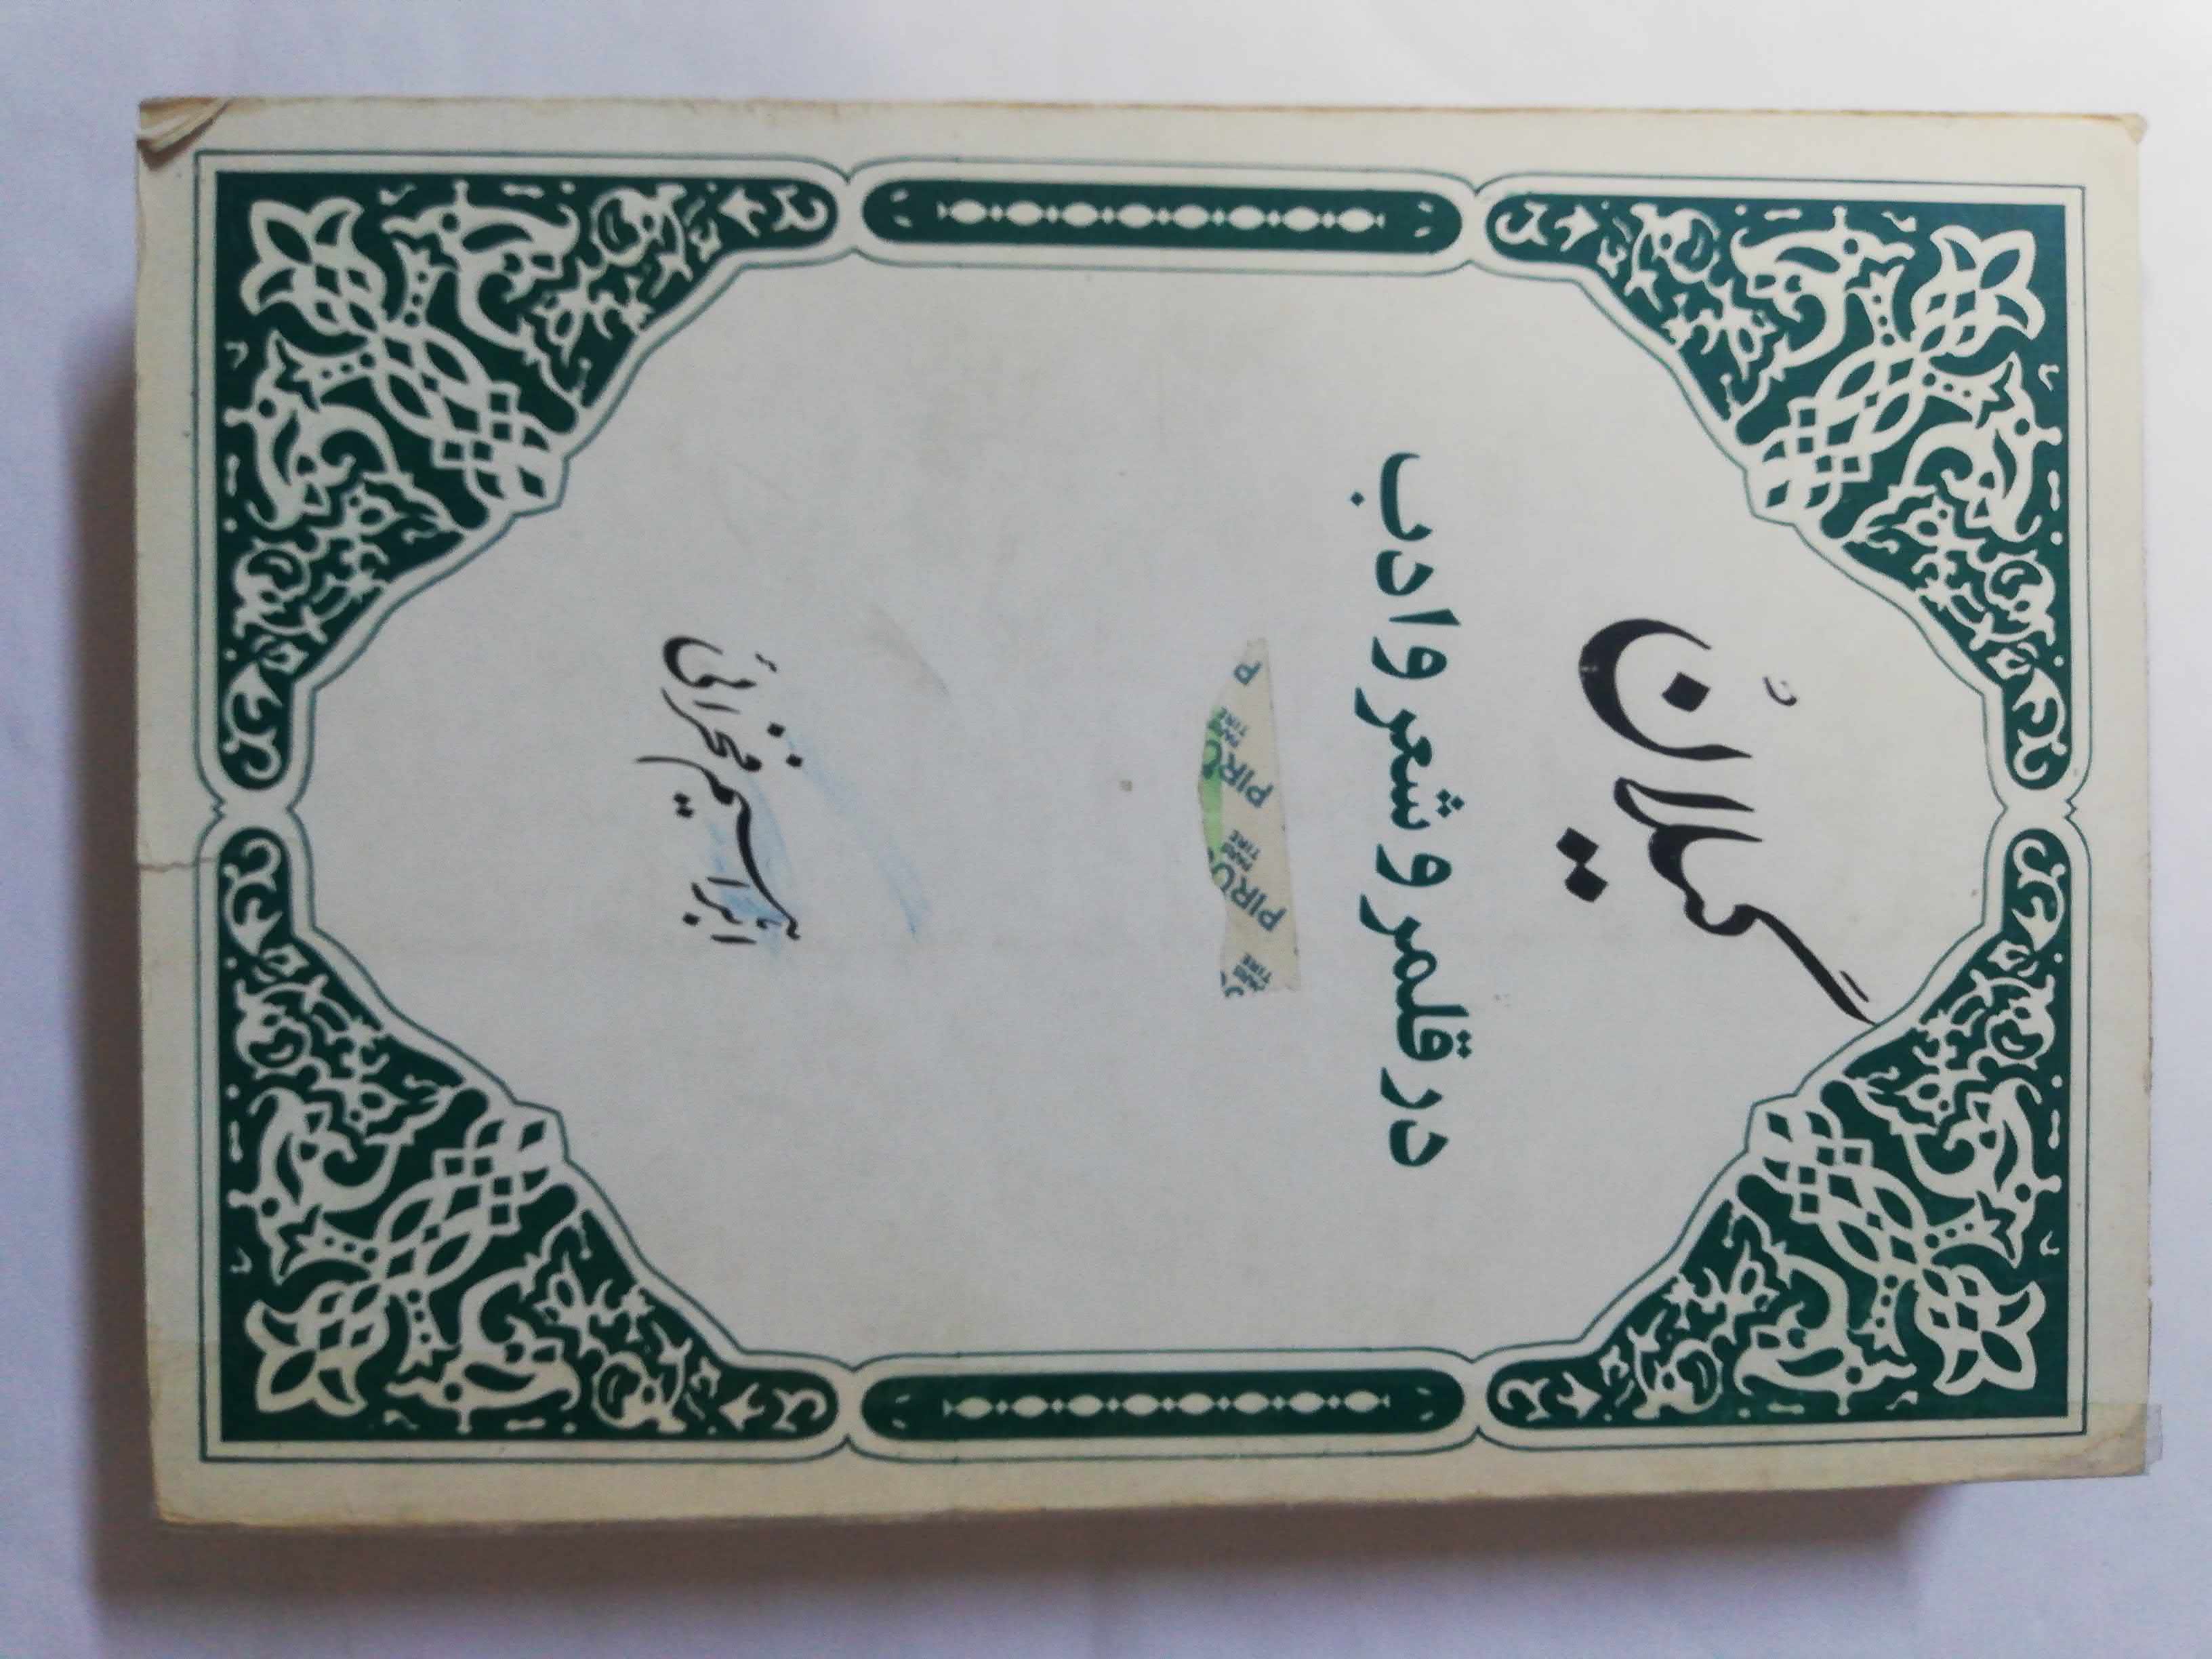 گیلان
در قلمرو شعر و ادب
ابراهیم فخرائی
PIRO PARS TIRE PIRO PARS TIRE